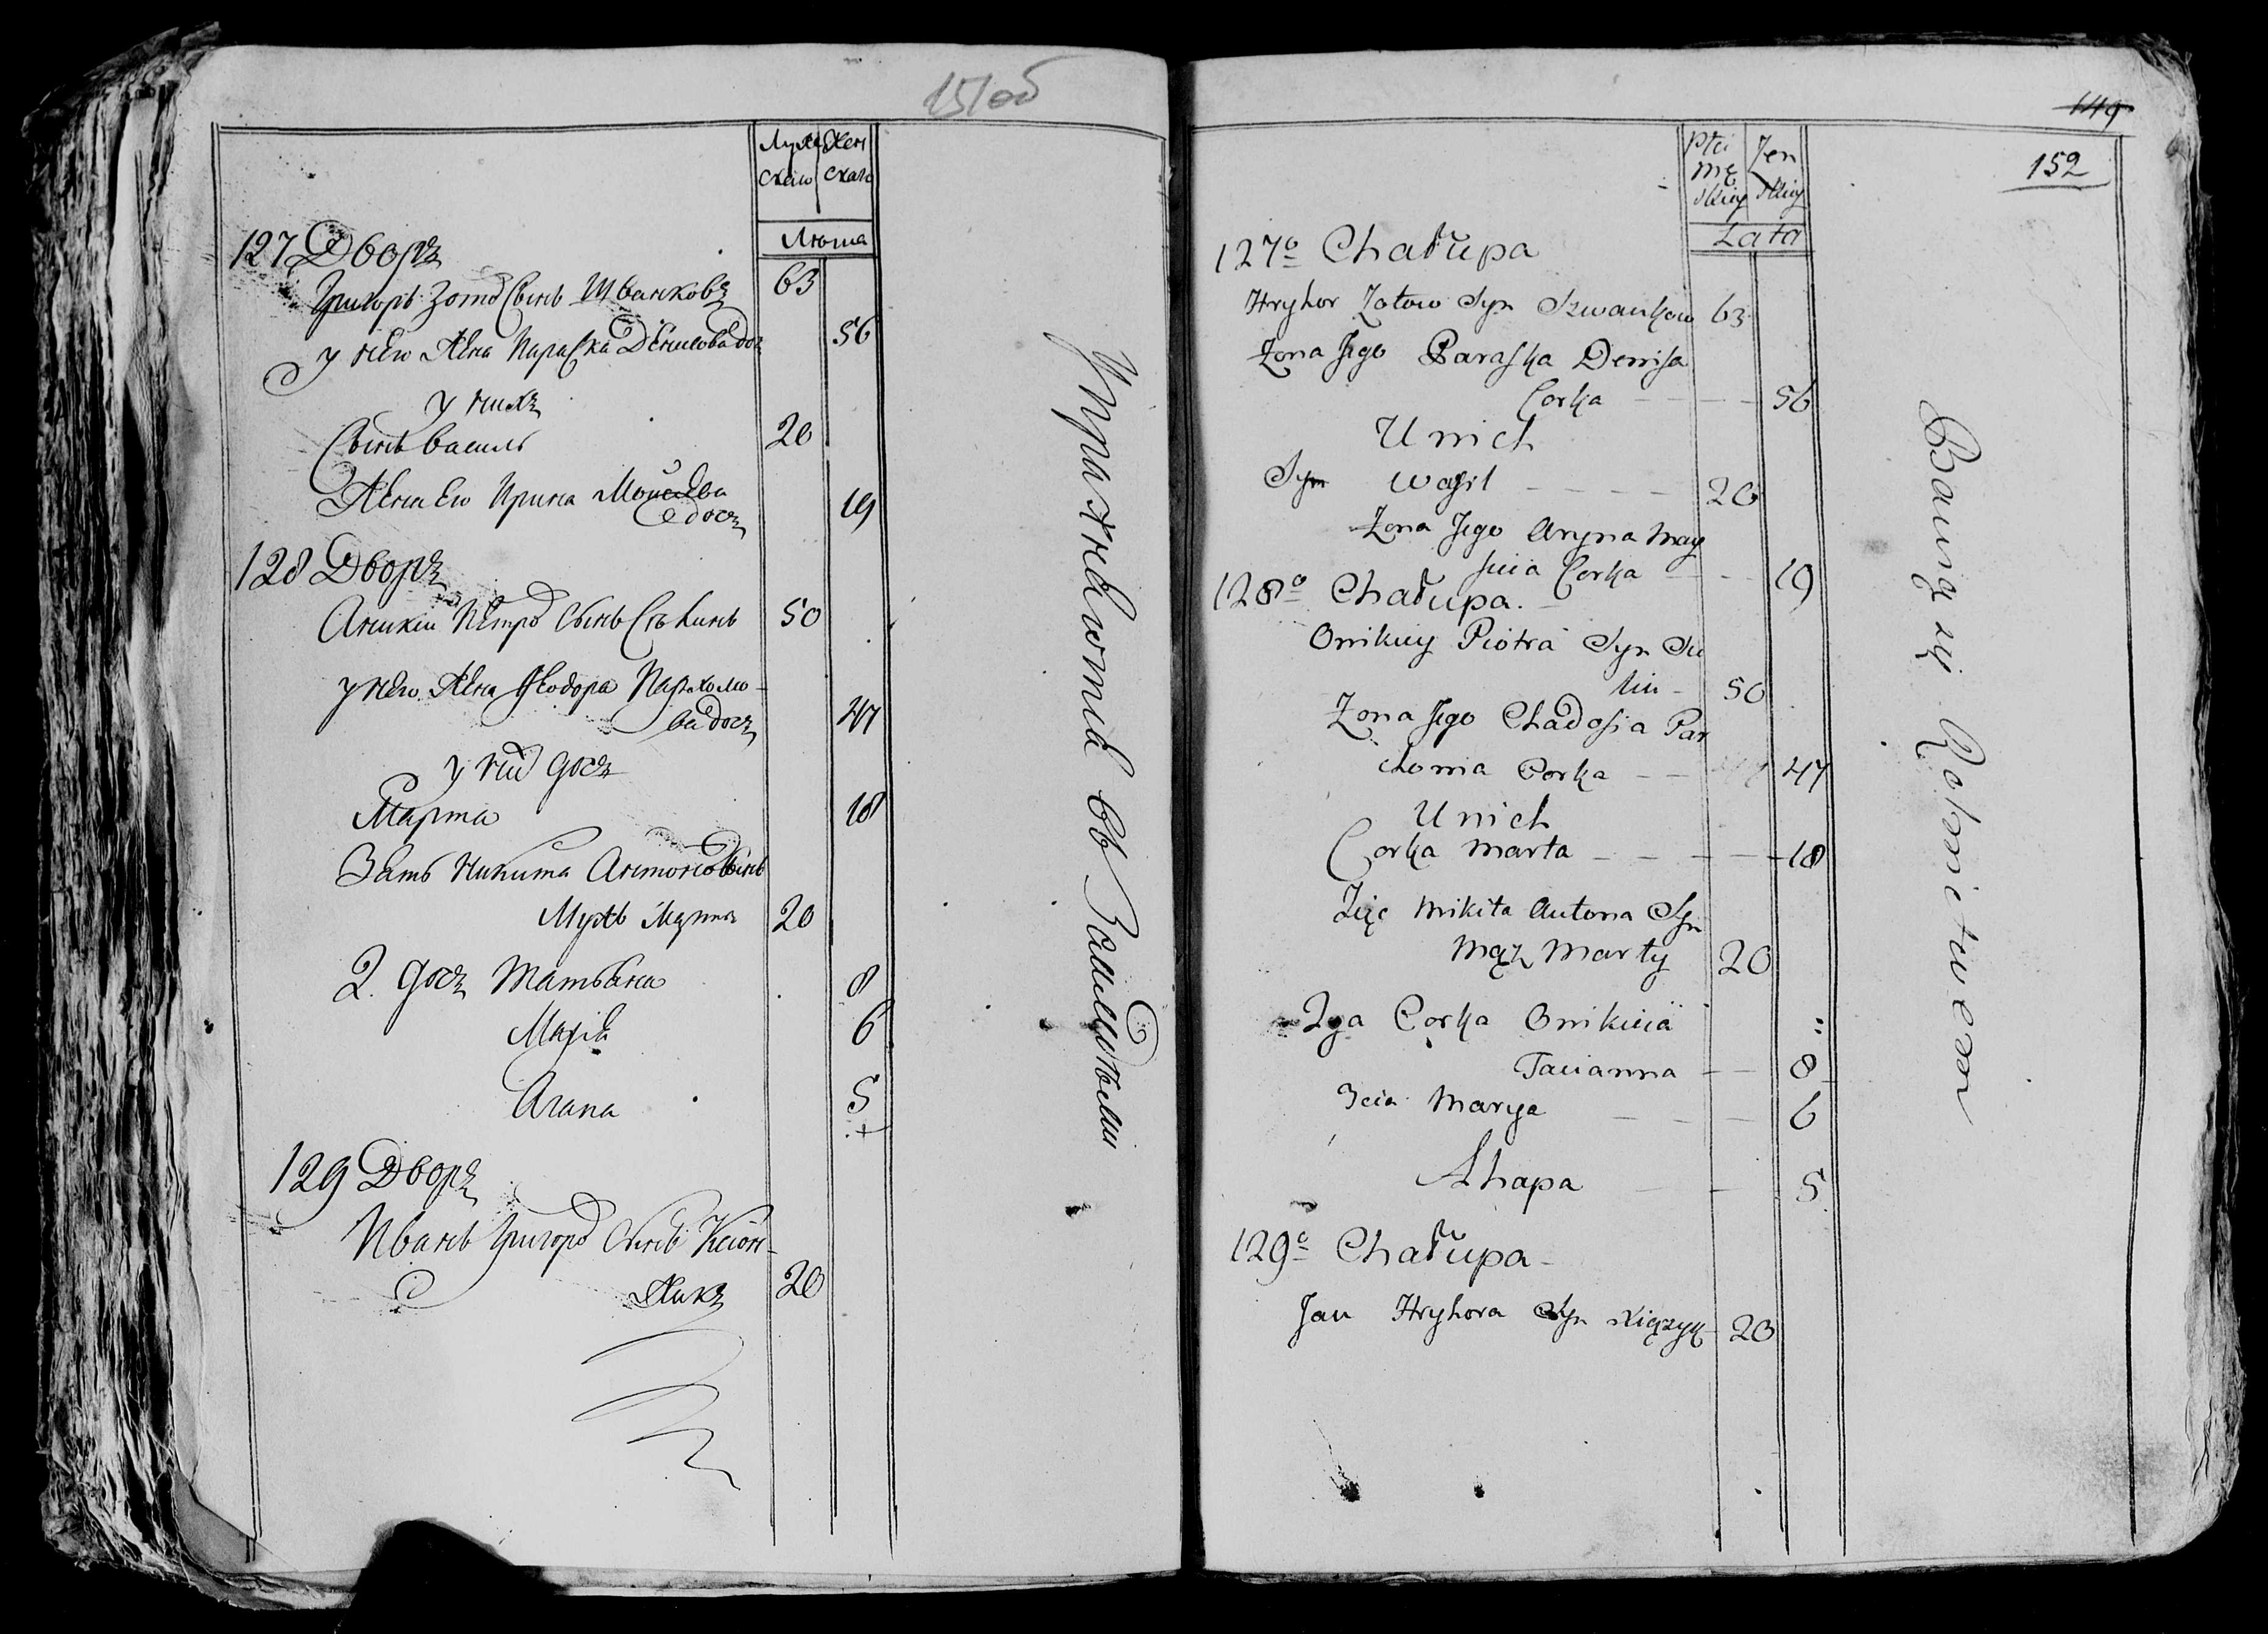 151об
Мужескаго Женскаго
Лѣта
127 Дворъ
Григорь Зотов Сынъ Шванковъ 63
у него Жена Параска Денисова доч 56
у нихъ
Сынъ Василь 20
Жена Его Ирина Мойсеева дочъ 19
128 Дворъ
Аникій Петров Сынъ 50
у него Жена Феодора Пархомова дочъ 47
у ний дочъ
Марта 18
Зять Никита Антонов Сынъ
Мужъ Марты 20
2. дочъ Татьяна 8
Марія 6
Агапа 5
129 Дворъ
Иванъ Григоров Сынъ Ксіонжикъ 20
Упражневюття въ
149
152
Płci
Mę Żen
skiey skiey
Lata
127o Chałupa
Hryhor Zotow Syn Szwankow 63
Żona Jego Paraska Denisa
Corka 56
U nich
Syn Wasil 20
Żona Jego Aryna Moy
sieia Corka 19
128o Chałupa.
Onikiey Piotra Syn Sie
kin 50
Żona Jego Chadosia Par
choma Corka 47
U nich
Corka Marta 18
Zięć Mikita Antona Syn
Mąż Marty 20
2ga Corka Onikieia
Tacianna 8
3cia Marya 6
Ahapa 5
129o Chałupa
Jan Hryhora Syn Xiążyk 20
Bawią się Rolnictwem